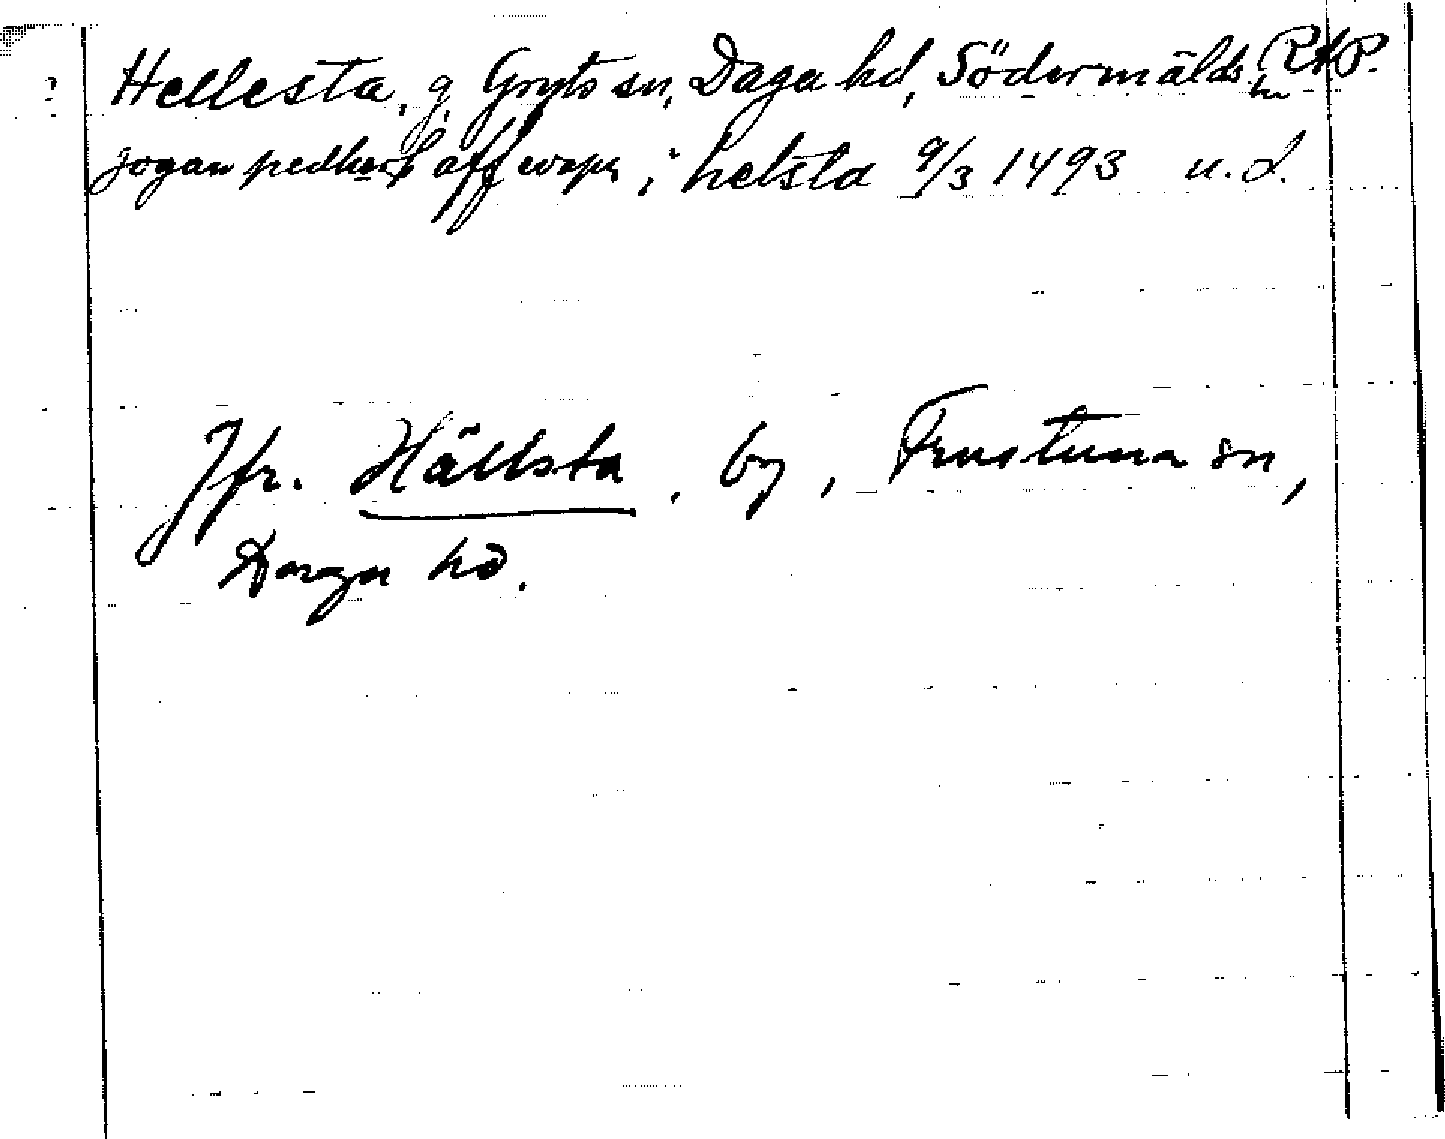 Hellesta, g Gryts sn, Daga hd, Södermanlds ln RAP.
jogan pedherß aff i helsta 9/3 1493 u.d.
Jfr. Hällsta, by, Frustuna sn,
Daga hd.